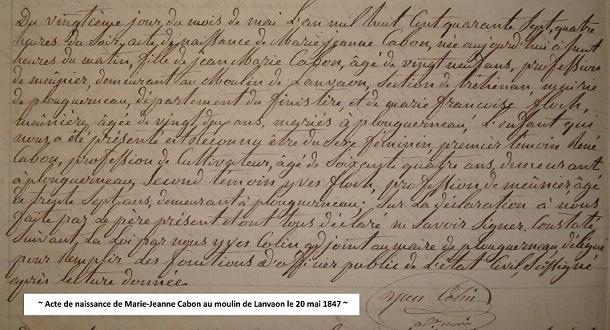 Du vingtieme jour du mois de mai L'an mil huit Cent quarante Sept, quatre
heures du Soir, acte de naissance de Marie jeanne Cabon, née aujourd'hui à
heures du matin, fille de jean Marie Cabon, âgé de vingt neuf ans, profession
de meunier, demeurant au Moulin de Lanvaon, Section de tréhénan, mairie
de plouguerneau, département du finistère, et de marie francoise floch,
meunière, agée de vingt ans, mariés à plouguerneau, L'enfant qui
nous a été présenté est reconnu être du Sexe féminin, premier temoin René
Cabon, profession de cultivateur, âgé de Soixante quatre ans, demeurant
à plouguerneau, Second témoin yves floch, profession de meunier âgé
de trente Sept ans, demeurant à plouguerneau; Sur La déclaration à nous
faite par Le père présent et ont tous déclaré ne Savoir Signer. Constaté
Suivant La Loi par nous yves Colin adjoint au maire de plouguerneau délégué
pour remplir Les fonctions d'officier public de L'état Civil, Soussigné
après Lecture donnée.
yves Colin
~ Acte de naissance de Marie-Jeanne Cabon au moulin de Lanvaon le 20 mai 1847 ~